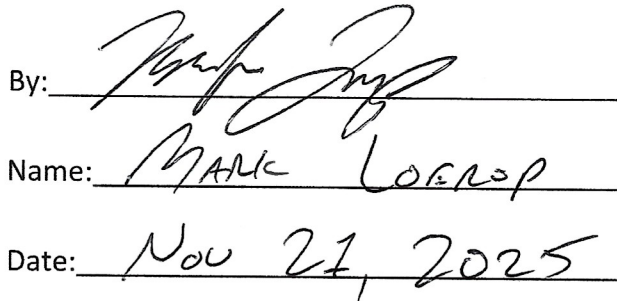 By:
Name: MARK LOEROP
Date: Nov 21, 2025